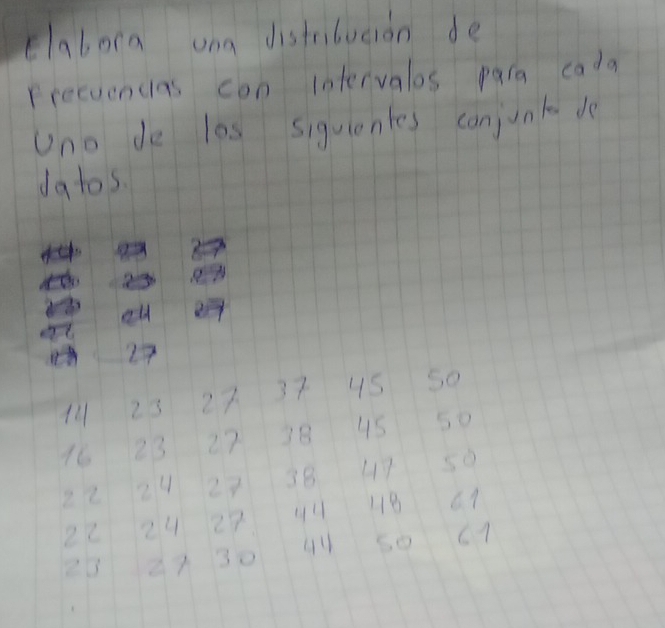 Elabora una distribución de
Frecuencias con intervalos para cada
Uno de los siguientes conjunto de
datos.
27
14 23 27 37 45 50
16 23 27 38 45 50
22 24 27 38 47 50
22 24 27 44 48 61
23 27 30 44 50 61